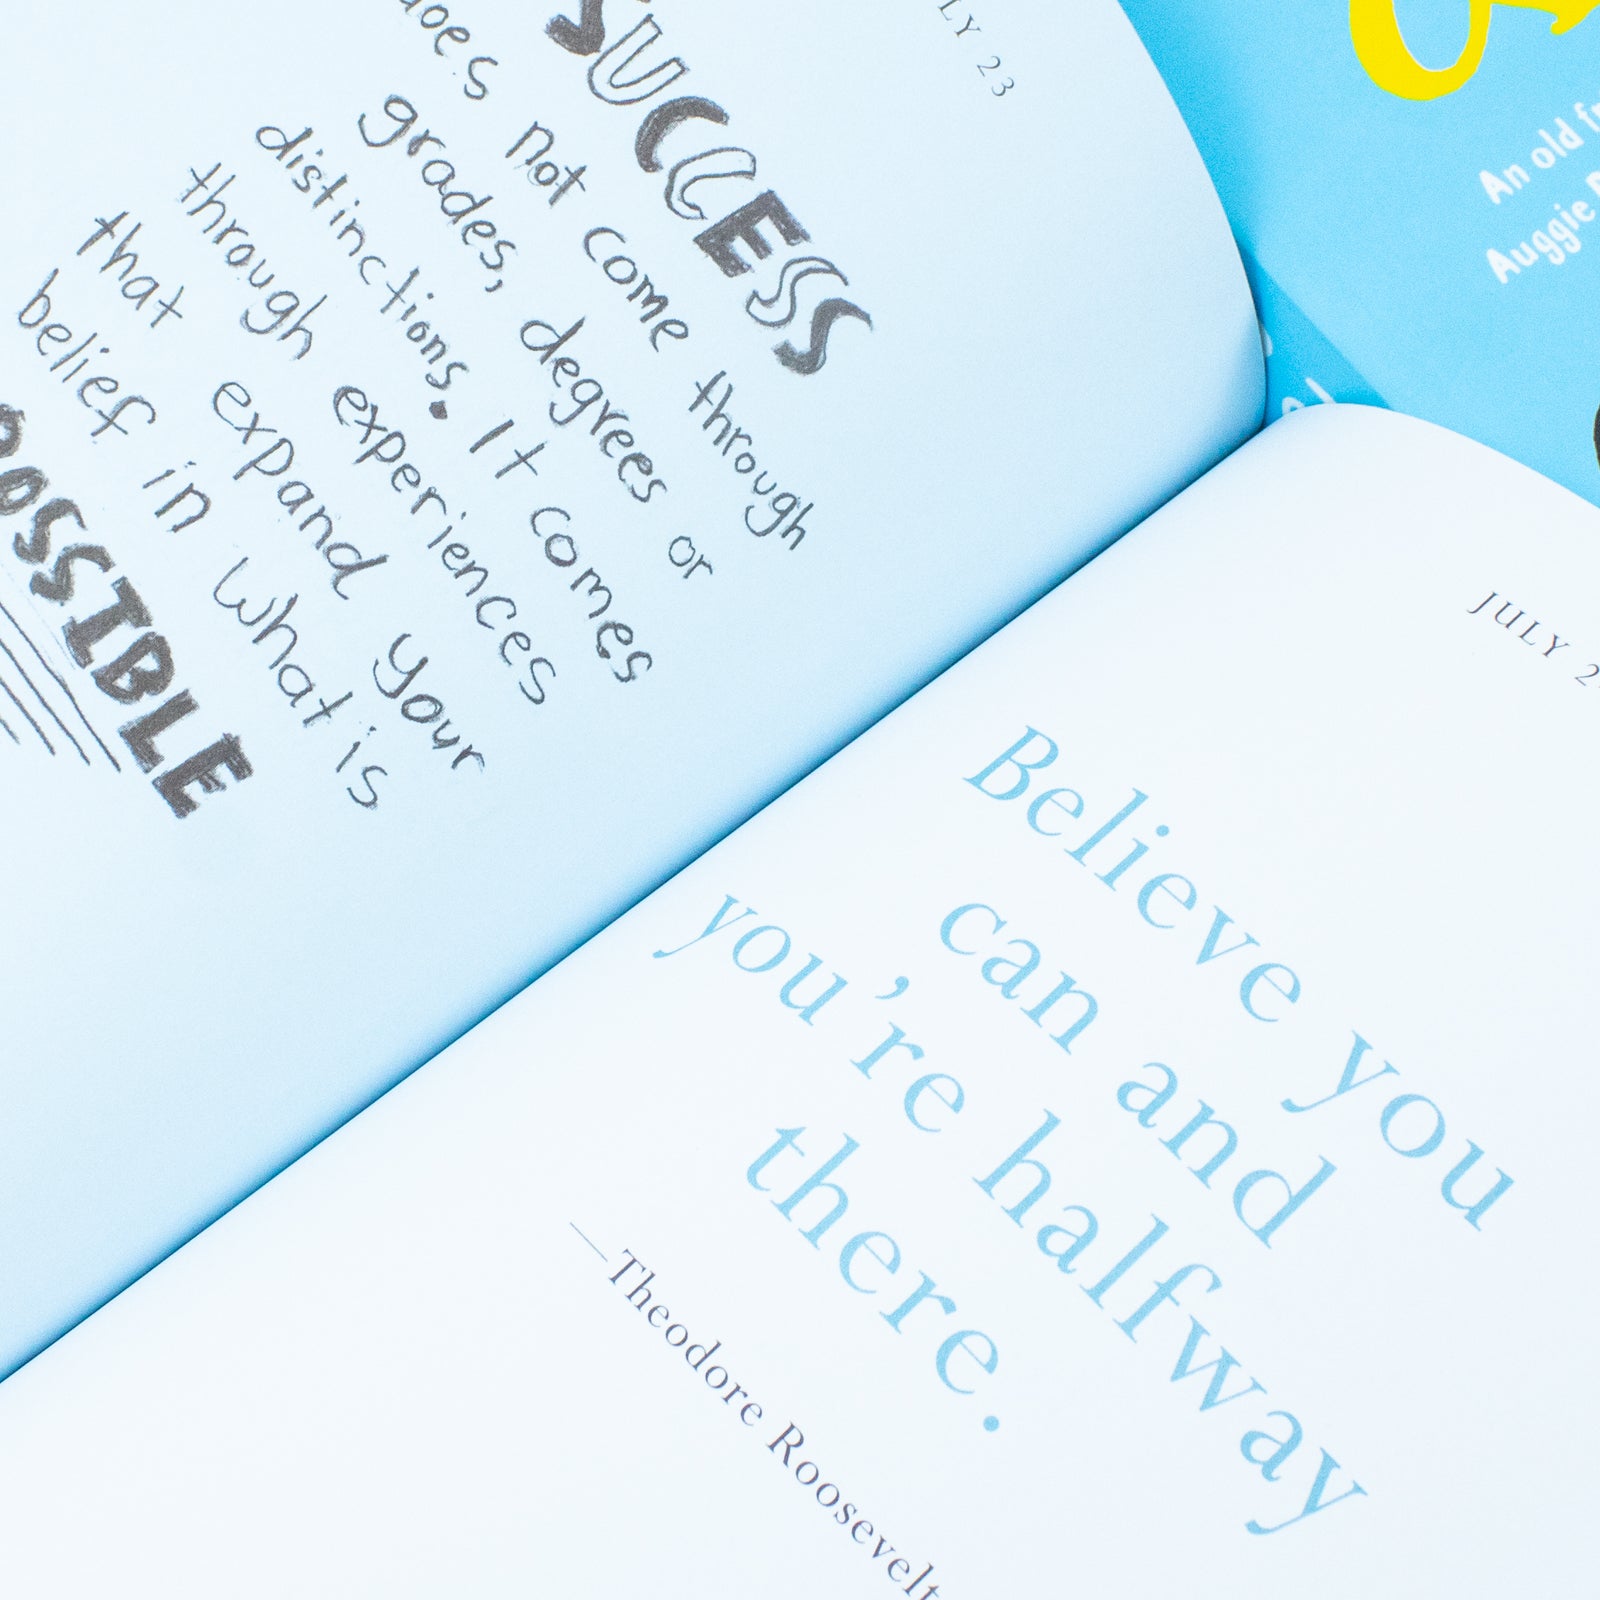 23
SUCCESS
does not come through
grades, degrees or
distinctions. It comes
through experiences
that expand your
belief in what is
POSSIBLE
JULY
Believe you
can and
you're halfway
there.
—Theodore Roosevelt
An old
Auggie